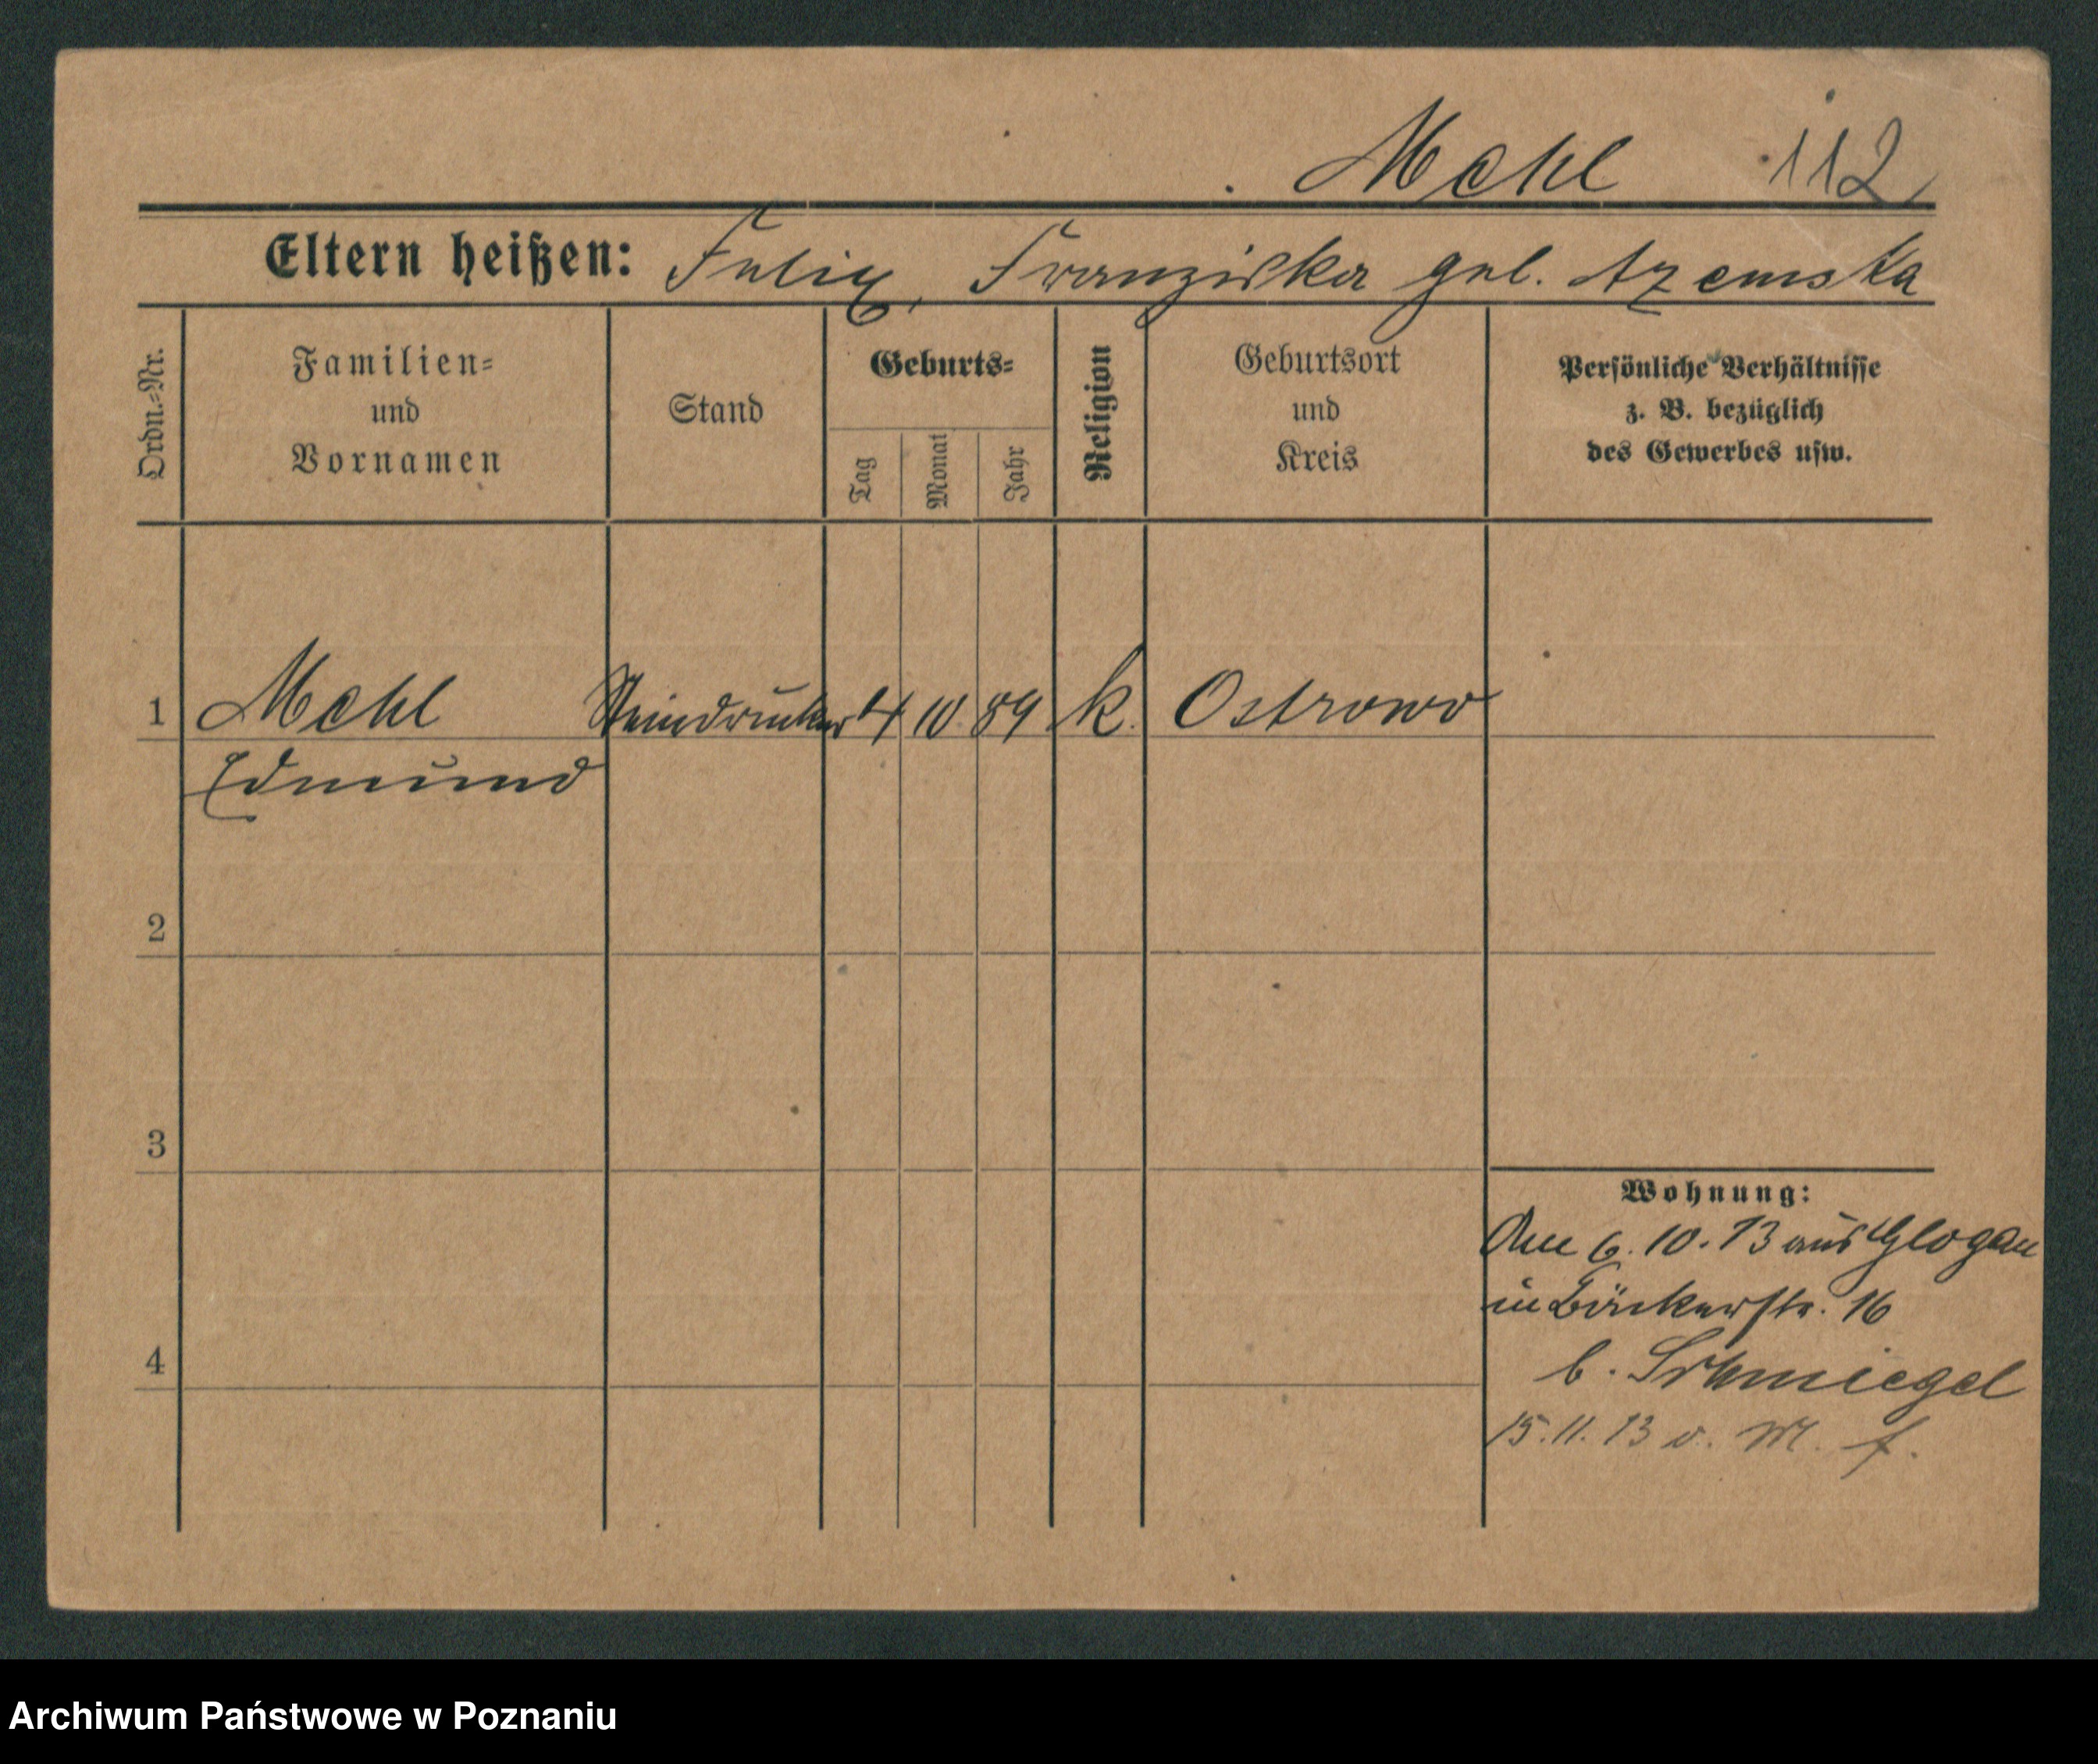 Mehl 112
Eltern heißen: Felix, Franziska geb.
Ordn.-Nr.
Familien-
und
Vornamen
Stand
Geburts-
Tag
Monat
Jahr
Religion
Geburtsort
und
Kreis
Persönliche Verhältnisse
z. B. bezüglich
des Gewerbes usw.
1 Mehl Steindrucker 4 10 89 k. Ostrowo
Edmund
2
3
4
Wohnung:
6. 10. 13 aus Glogau
in Bäckerstr. 16
b. Schmiegel
15. 11. 13 v. M. f.
Archiwum Państwowe w Poznaniu